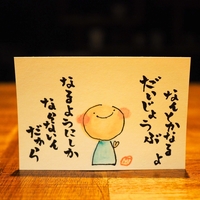 なんとかなるよ
だいじょうぶ
なるようにしか
ならないん
だから